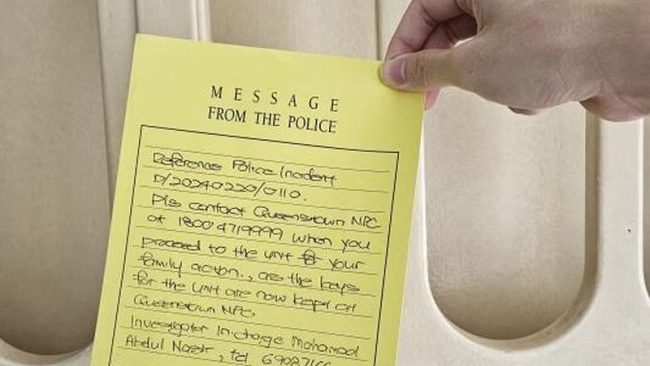 MESSAGE
FROM THE POLICE
Reference Police Incident
D/20240220/0110.
Pls contact Queenstown NPC
at 18004719999 when you
proceed to the unit for your
family action., as the keys
for the unit are now kept at
Queenstown NPC.
Investigator in-charge Mohamad
Abdul Nasir, tel